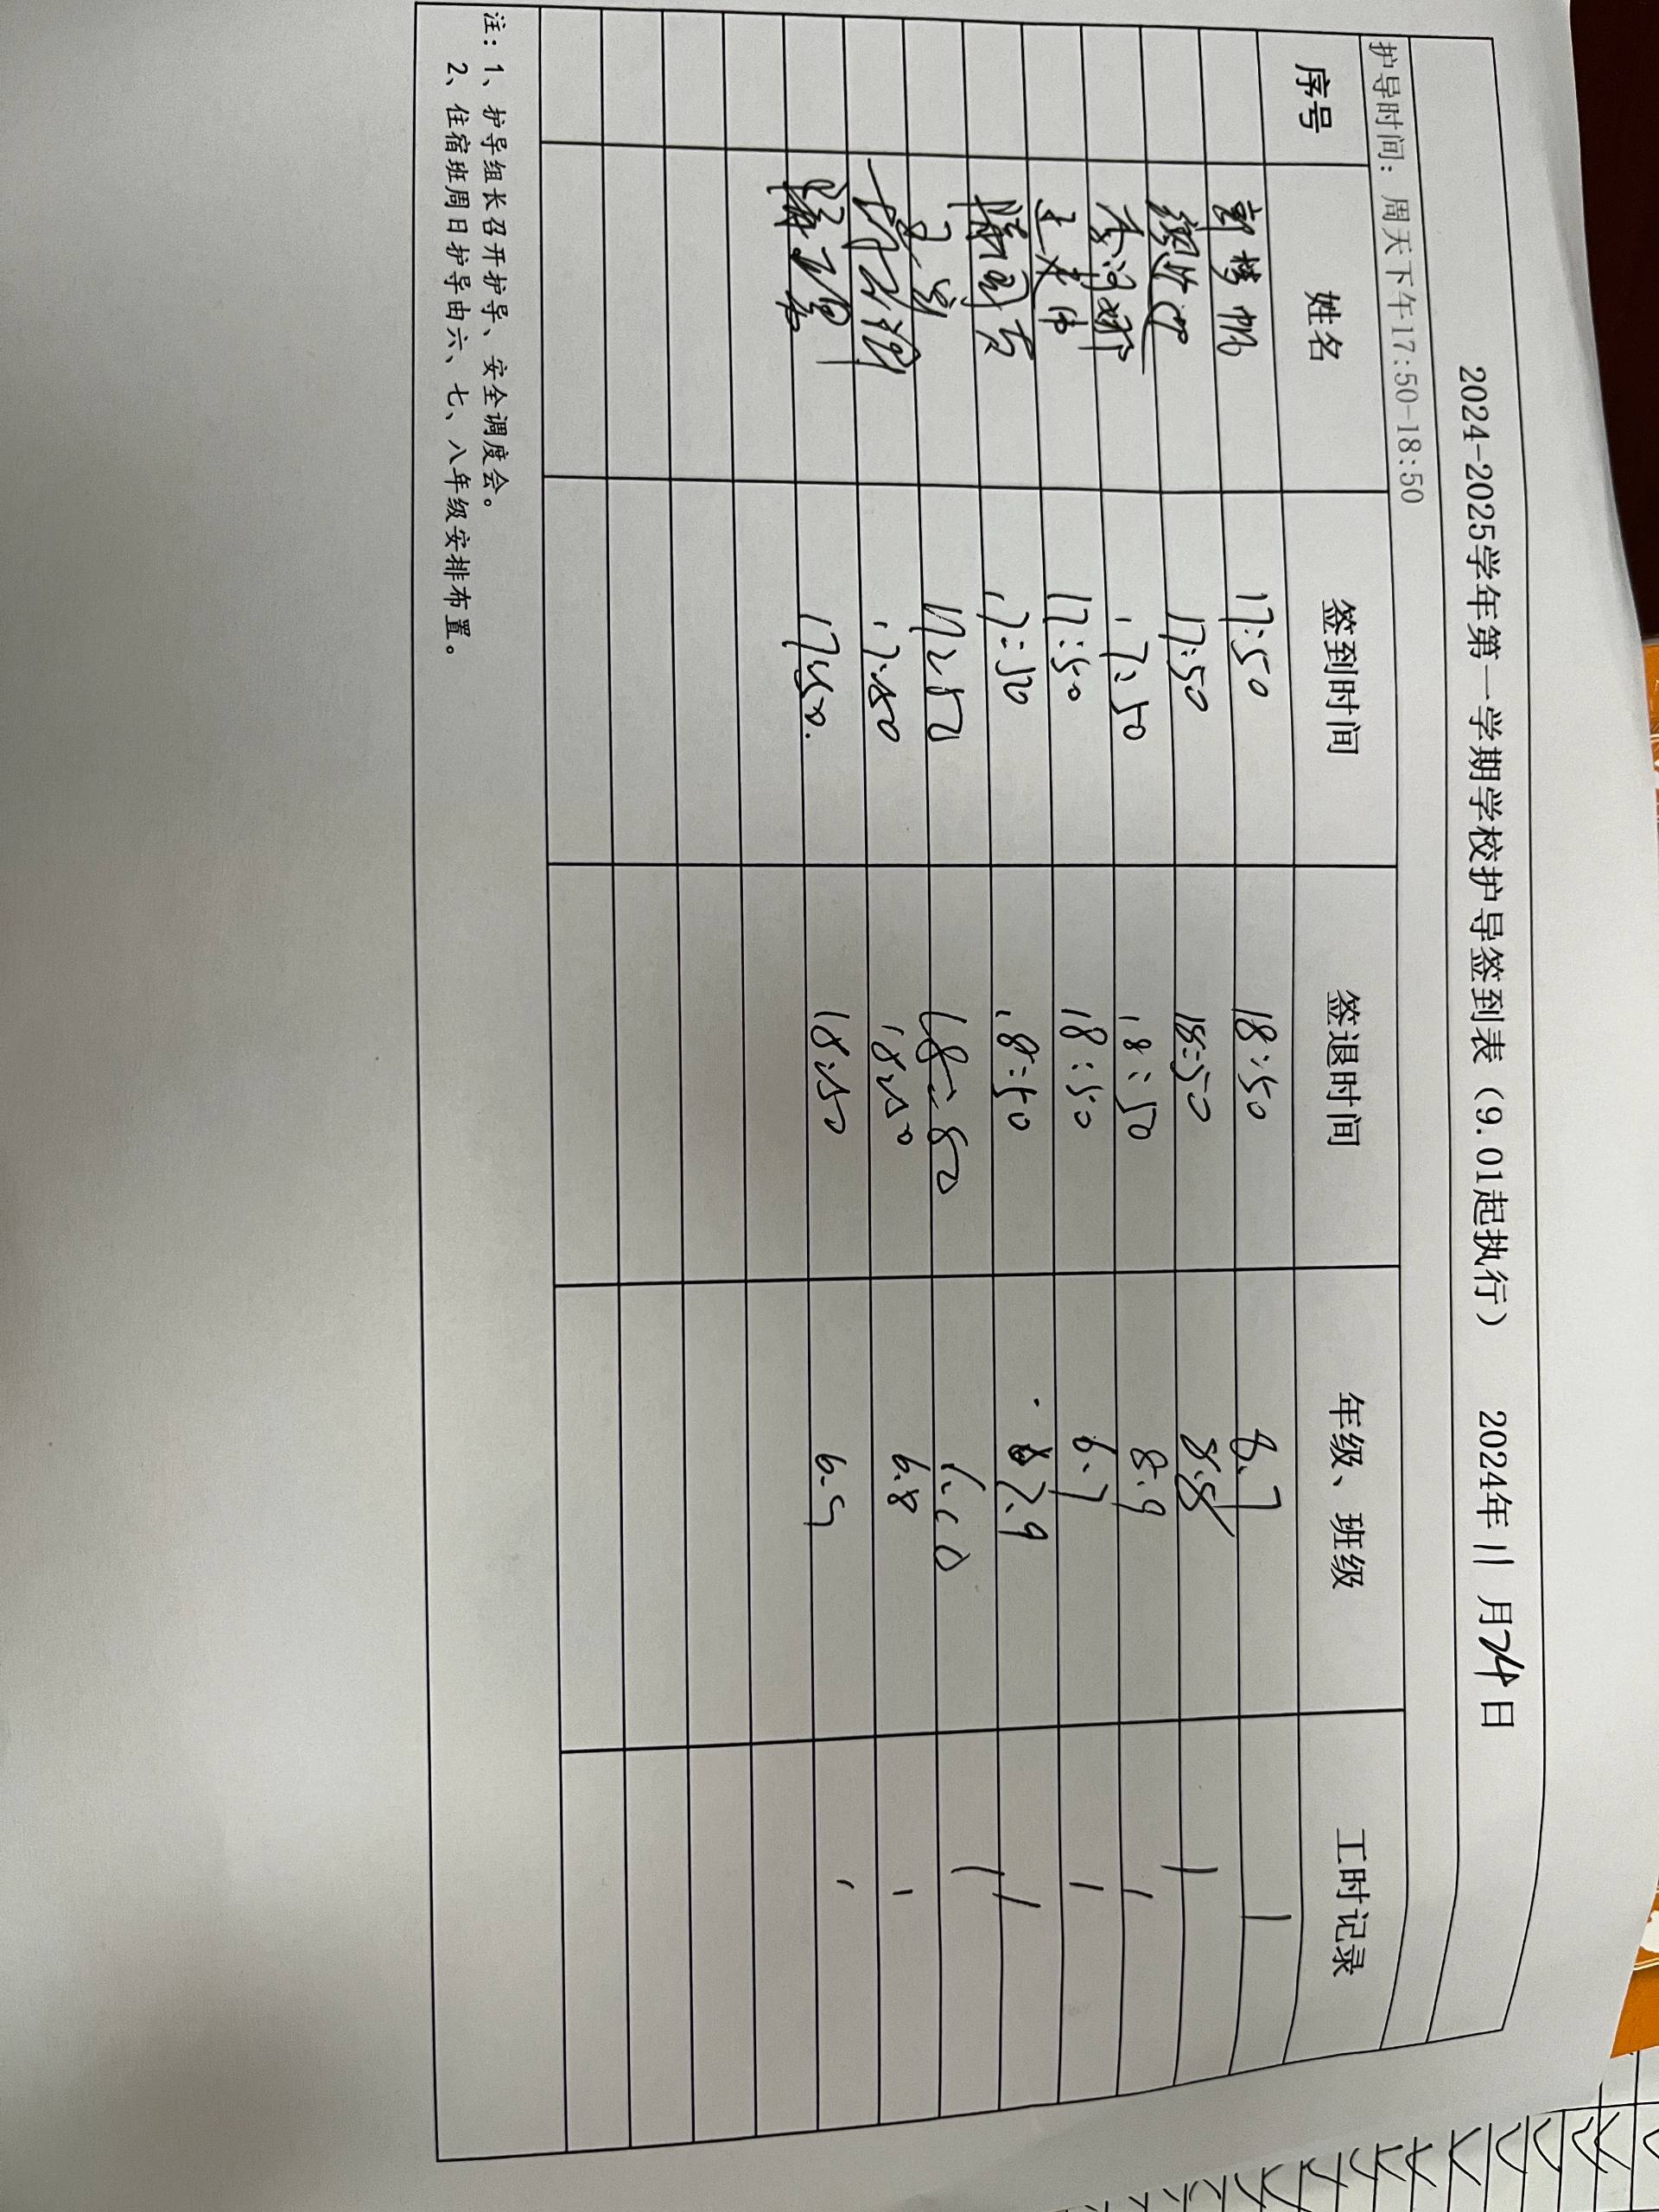 2024-2025学年第一学期学校护导签到表（9.01起执行） 2024年11月24日
护导时间：周天下午17:50-18:50
序号 姓名 签到时间 签退时间 年级、班级 工时记录
郭梦帆 17:50 18:50 8.7 1
17:50 18:50 8.8 1
17:50 18:50 8.9 1
17:50 18:50 6.7 1
17:50 18:50 7.9 1
17:50 18:50 1
17:50 18:50 6.8 1
17:50 18:50 6.9 1
注：1、护导组长召开护导、安全调度会。
2、住宿班周日护导由六、七、八年级安排布置。